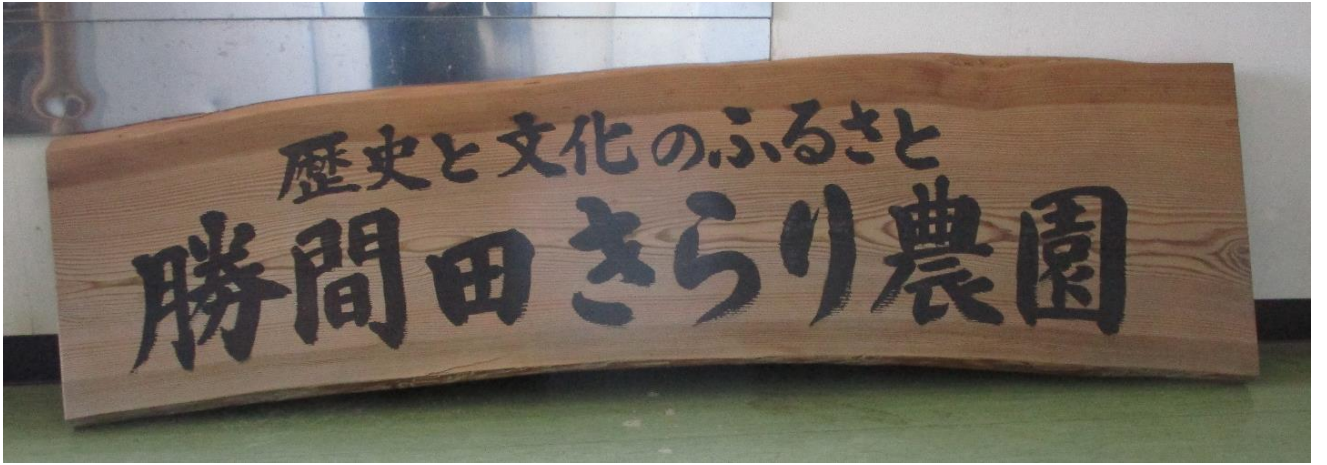 歴史と文化のふるさと
勝間田きらり農園